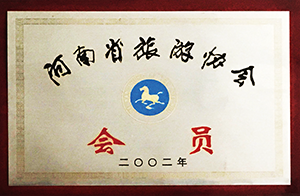 河南省旅游协会
会员
二〇〇二年